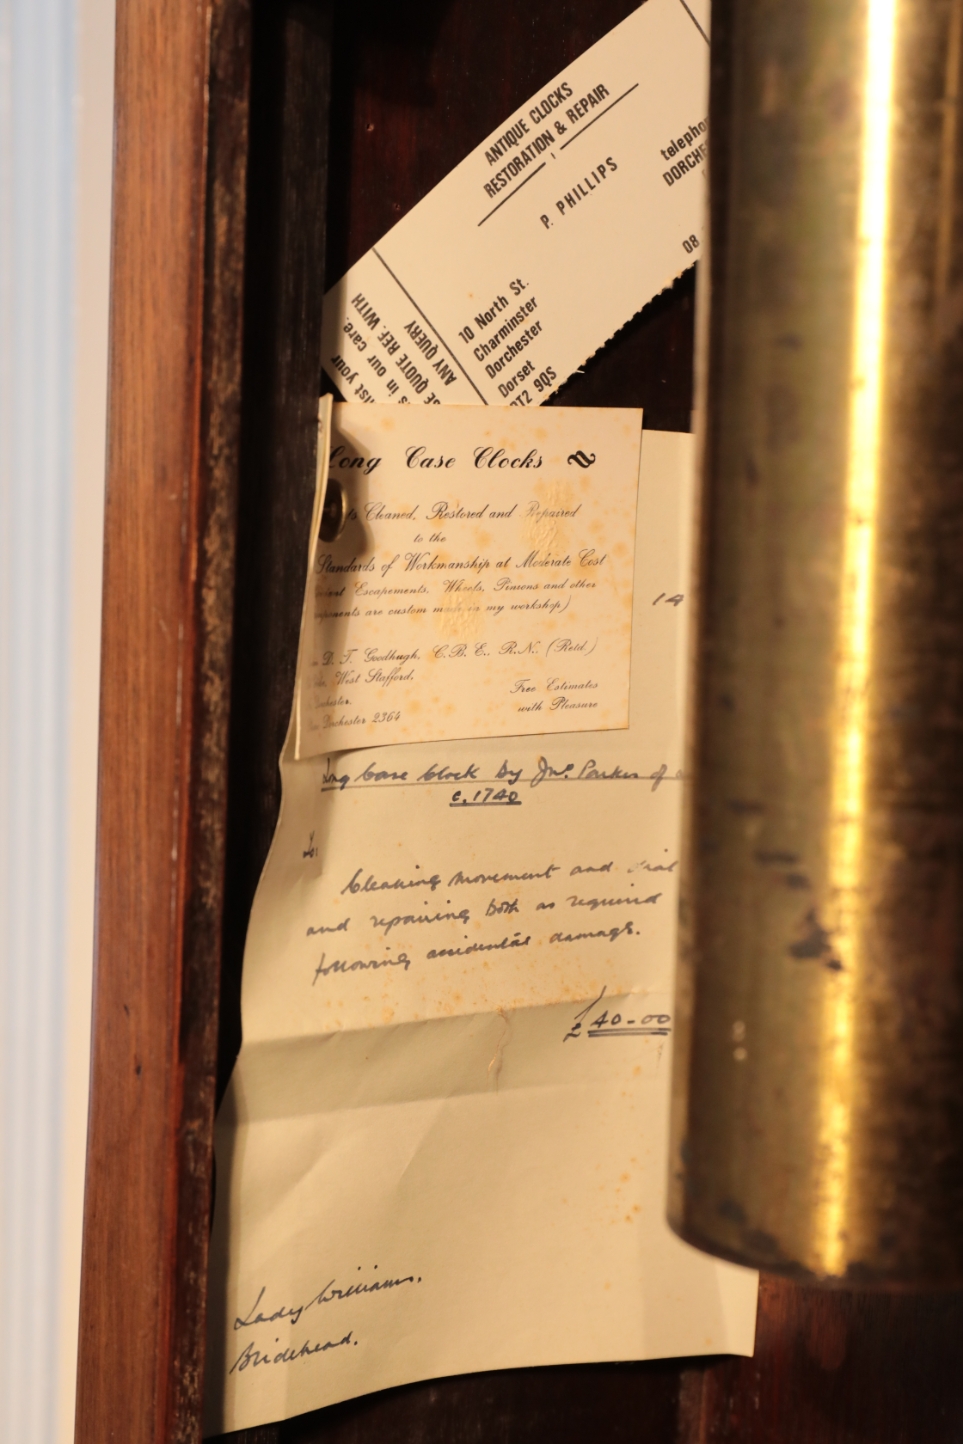 ANTIQUE CLOCKS
RESTORATION & REPAIR
P. PHILLIPS
telephon
DORCHE
08
10 North St.
Charminster
Dorchester
Dorset
DT2 9QS
list your
s in our care.
SE QUOTE REF. WITH
ANY QUERY
Long Case Clocks
ts Cleaned, Restored and Repaired
to the
Standards of Workmanship at Moderate Cost
Escapements, Wheels, Pinions and other
ponents are custom made in my workshop)
D. T. Goodhugh, C.B.E., R.N. (Retd.)
West Stafford,
chester.
Dorchester 2364
Free Estimates
with Pleasure
14
Long Case Clock by Jno. Parker of
c. 1740
To:
Cleaning movement and dial
and repairing both as required
following accidental damage.
£40-00
Lady Williams.
Bridehead.